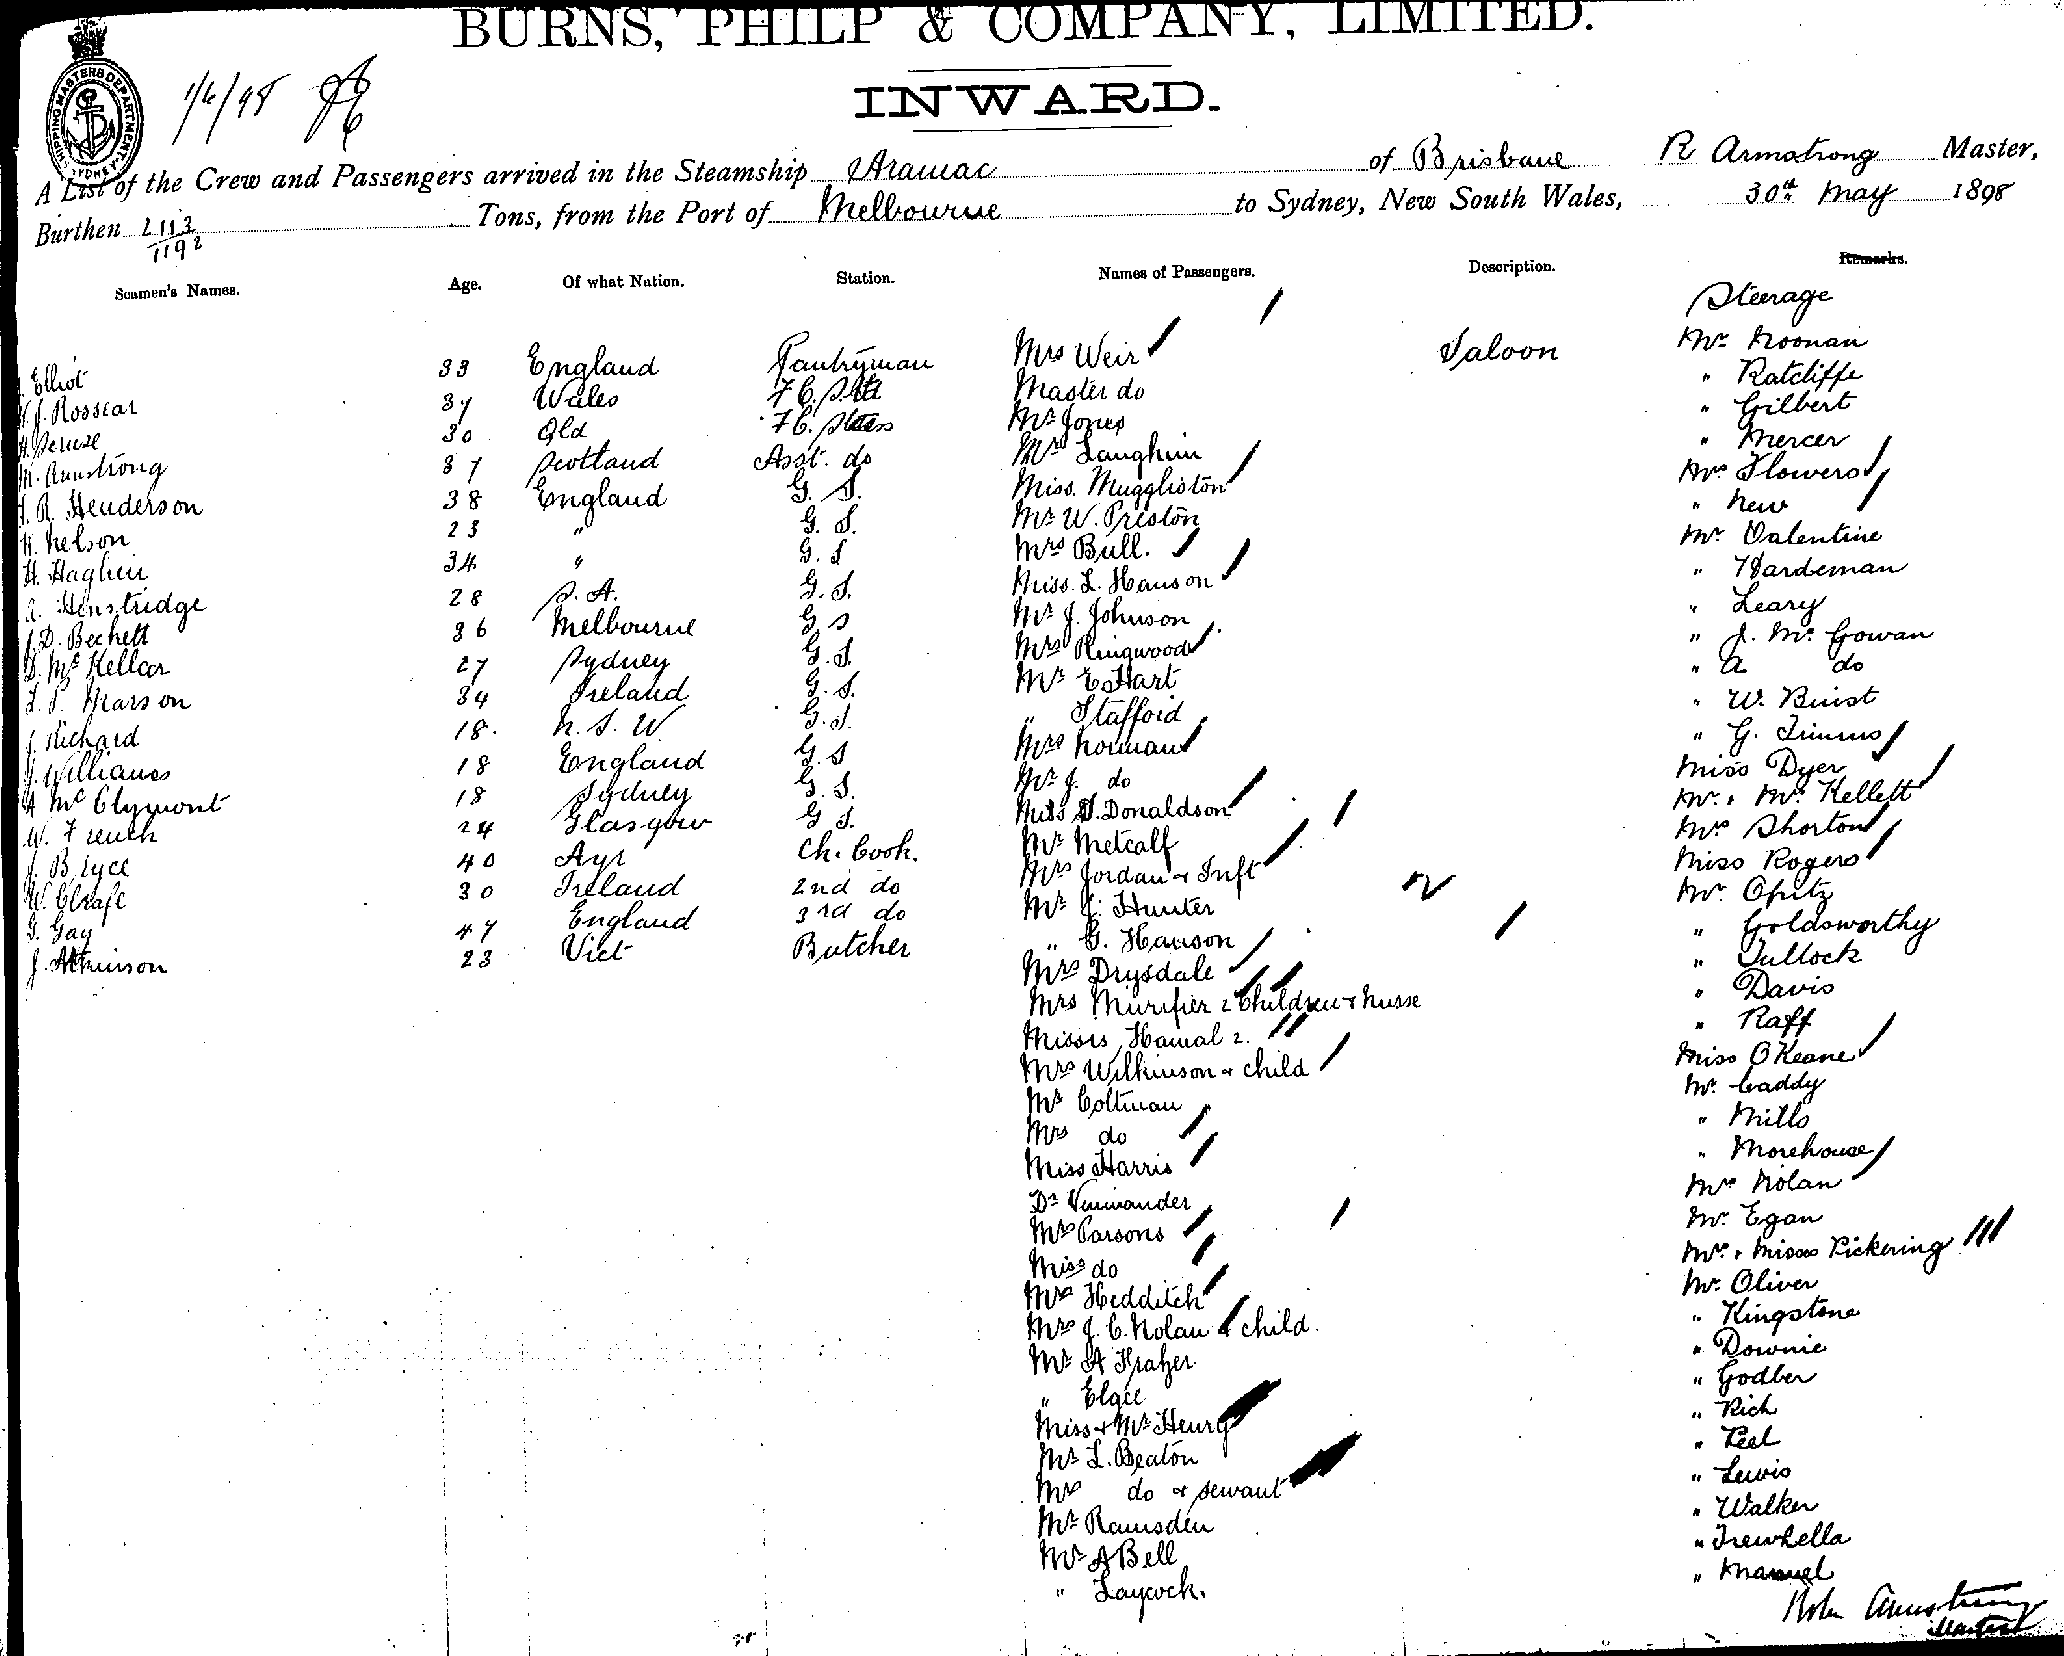 BURNS, PHILP & COMPANY, LIMITED.
INWARD.
SHIPPING MASTERS DEPARTMENT SYDNEY
1/6/98
A List of the Crew and Passengers arrived in the Steamship Aramac of Brisbane R Armstrong Master,
Burthen 2113/1192 Tons, from the Port of Melbourne to Sydney, New South Wales, 30th May 1898
Seamen's Names. Age. Of what Nation. Station. Names of Passengers. Description. Remarks.
Elliot 33 England Pantryman
J. Rosscar 37 Wales F C. Std
30 Qld F C. Stess
M. Armstrong 37 Scotland Asst. do
R. Henderson 38 England G. S.
Nelson 23 " G. S.
H. Haglin 34 " G. S
A. Henstridge 28 S. A. G. S.
J. D. Beckett 36 Melbourne G S
D. McKellar 27 Sydney G. S.
L. S. Marson 34 Ireland G. S.
J. Richard 18. N. S. W G. S.
J. Williams 18 England G. S
A McClymont 18 Sydney G. S.
W. French 24 Glasgow G S.
J. Bryce 40 Ayr Ch. Cook.
W. 30 Ireland 2nd do
G. Gay 47 England 3rd do
J. Atkinson 23 Vict Butcher
Saloon
Mrs Weir
Master do
Mr Jones
Mr Laughlin
Miss. Muggliston
Mr W. Preston
Mrs Bull.
Miss. L. Hanson
Mr J. Johnson
Mrs Ringwood
Mr E. Hart
" Stafford
Mrs Norman
Mr J. do
Miss S. Donaldson
Mr Metcalf
Mrs Jordan & Inft
Mr J. Hunter
" G. Hanson
Mrs Drysdale
Mrs Murifier 2 Children & Nurse
Misses Hamal 2.
Mrs Wilkinson & child
Mr Coltman
Mrs do
Miss Harris
Dr
Mrs Parsons
Miss do
Mrs Hedditch
Mrs J. C. Nolan & child.
Mr A Frazer
" Elgee
Miss & Mr Henry
Mr L. Beaton
Mrs do & servant
Mr Ramsden
Mr A Bell
" Laycock.
Steerage
Mr. Noonan
" Ratcliffe
" Gilbert
" Mercer
Mrs Flowers
" New
Mr. Valentine
" Hardeman
" Leary
" J. McGowan
" A do
" W. Binst
" G. Timms
Miss Dyer
Mr. & Mrs Kellett
Mrs Shorton
Miss Rogers
Mr. Opitz
" Goldsworthy
" Tullock
" Davis
" Raff
Miss O'Keane
Mr. Caddy
" Mills
" Morehouse
Mrs Nolan
Mr. Egan
Mrs & Misses Pickering
Mr. Oliver
" Kingstone
" Downie
" Godber
" Rich
" Peel
" Lewis
" Walker
" Trewhella
" Manuel
Robt Armstrong
Master